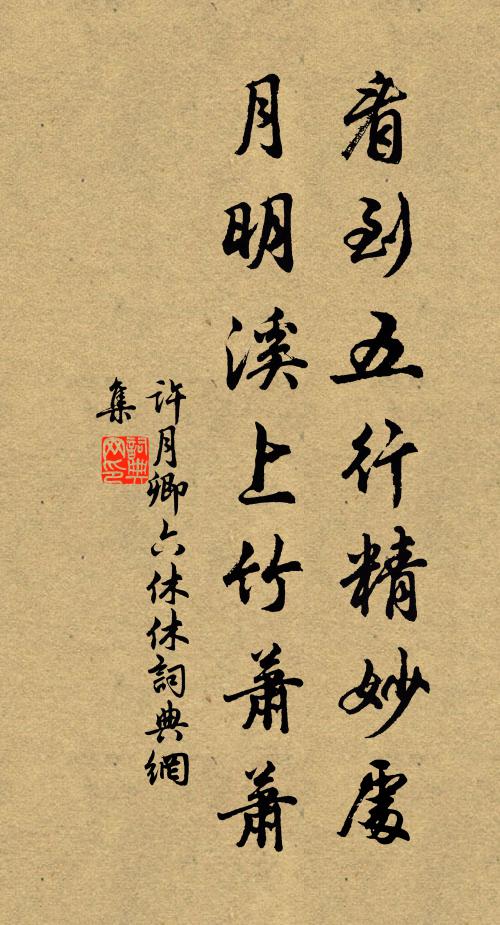 看到五行精妙處
月明溪上竹蕭蕭
許月卿六休休詞典網
集
詞典网印